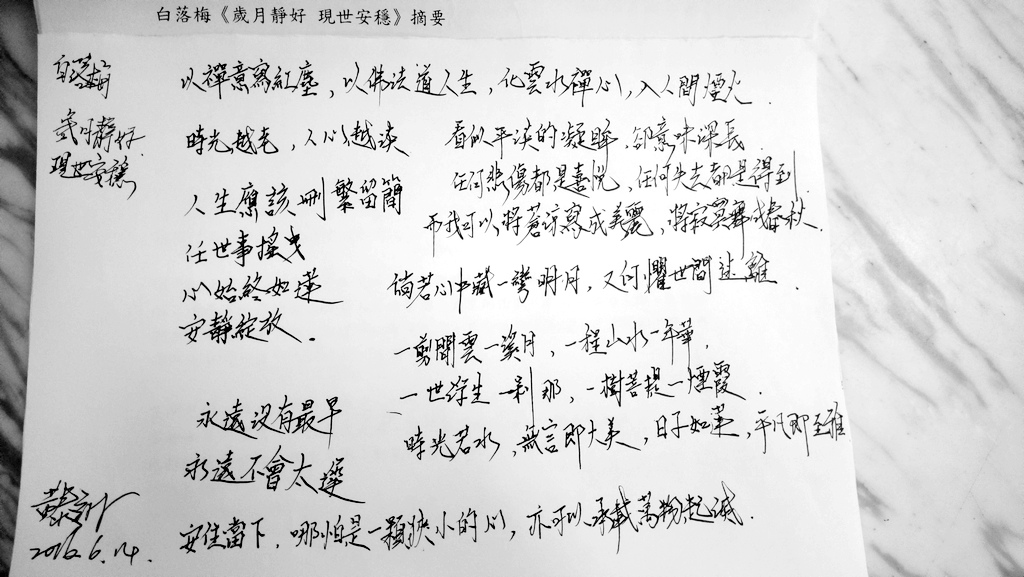 白落梅《歲月靜好 現世安穩》摘要
白落梅
歲月靜好
現世安穩
以禪意寫紅塵，以佛法道人生，化雲水禪心，入人間煙火．
時光越老，人心越淡
看似平淡的凝眸，卻意味深長．
任何悲傷都是喜悅，任何失去都是得到．
而我可以將蒼涼寫成美麗，將寂寞舞成春秋．
人生應該刪繁留簡
任世事搖曳
心始終如蓮
安靜綻放．
倘若心中藏一彎明月，又何懼世間迷離．
一剪閒雲一溪月，一程山水一年華．
一世浮生一剎那，一樹菩提一煙霞．
時光若水，無言即大美，日子如蓮，平凡即至雅
永遠沒有最早
永遠不會太遲
安住當下，哪怕是一顆狹小的心，亦可以承載萬物起滅．
2016.6.14.